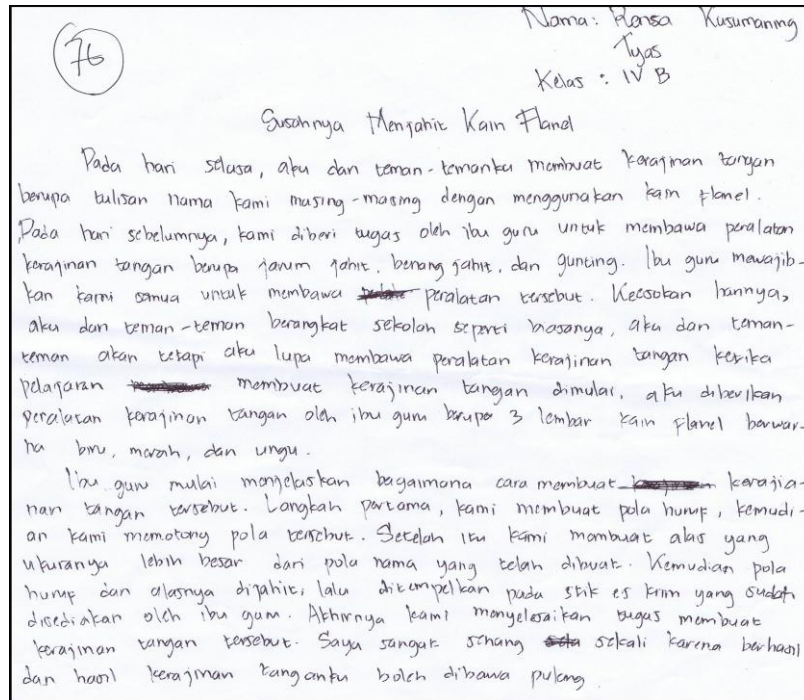 Nama: Hensa Kusumaning
76
Tyas
Kelas : IV B
Susahnya Menjahit Kain Flanel
Pada hari selasa, aku dan teman-temanku membuat kerajinan tangan
berupa tulisan nama kami masing-masing dengan menggunakan kain flanel.
Pada hari sebelumnya, kami diberi tugas oleh ibu guru untuk membawa peralatan
kerajinan tangan berupa jarum jahit, benang jahit, dan gunting. Ibu guru mewajib-
kan kami semua untuk membawa peralatan tersebut. Keesokan harinya,
aku dan teman-teman berangkat sekolah seperti biasanya, aku dan teman-
teman akan tetapi aku lupa membawa peralatan kerajinan tangan ketika
pelajaran membuat kerajinan tangan dimulai, aku diberikan
peralatan kerajinan tangan oleh ibu guru berupa 3 lembar kain flanel berwar-
na biru, merah, dan ungu.
Ibu guru mulai menjelaskan bagaimana cara membuat kerajia-
nan tangan tersebut. Langkah pertama, kami membuat pola huruf, kemudi-
an kami memotong pola tersebut. Setelah itu kami membuat alas yang
ukuranya lebih besar dari pola nama yang telah dibuat. Kemudian pola
huruf dan alasnya dijahit, lalu ditempelkan pada stik es krim yang sudah
disediakan oleh ibu guru. Akhirnya kami menyelesaikan tugas membuat
kerajinan tangan tersebut. Saya sangat senang sekali karena berhasil
dan hasil kerajinan tanganku boleh dibawa pulang.